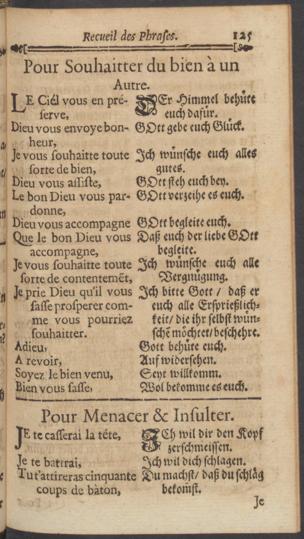 Recueil des Phrases. 125
Pour Souhaitter du bien à un
Autre.
LE Ciél vous en pré- DEr Himmel behüte
serve, euch dafür.
Dieu vous envoye bon- GOtt gebe euch Glück.
heur,
Je vous souhaitte toute Ich wünsche euch alles
sorte de bien, gutes.
Dieu vous assiste, GOtt steh euch bey.
Le bon Dieu vous par- GOtt verzeihe es euch.
donne,
Dieu vous accompagne GOtt begleite euch.
Que le bon Dieu vous Daß euch der liebe GOtt
accompagne, begleite.
Je vous souhaitte toute Ich wünsche euch alle
sorte de contentemēt, Vergnügung.
Je prie Dieu qu'il vous Ich bitte Gott / daß er
fasse prosperer com- euch alle Ersprießlich-
me vous pourriez keit / die ihr selbst wün-
souhaitter. schē möchtet / beschehre.
Adieu. Gott behüte euch.
A revoir, Auf widersehen.
Soyez le bien venu, Seyt willkomm.
Bien vous fasse, Wol bekomme es euch.
Pour Menacer & Insulter.
JE te casserai la téte, ICh wil dir den Kopf
zerschmeissen.
Je te battrai, Ich wil dich schlagen.
Tu t'attireras cinquante Du machst / daß du schläg
coups de bâton, bekomst.
Je